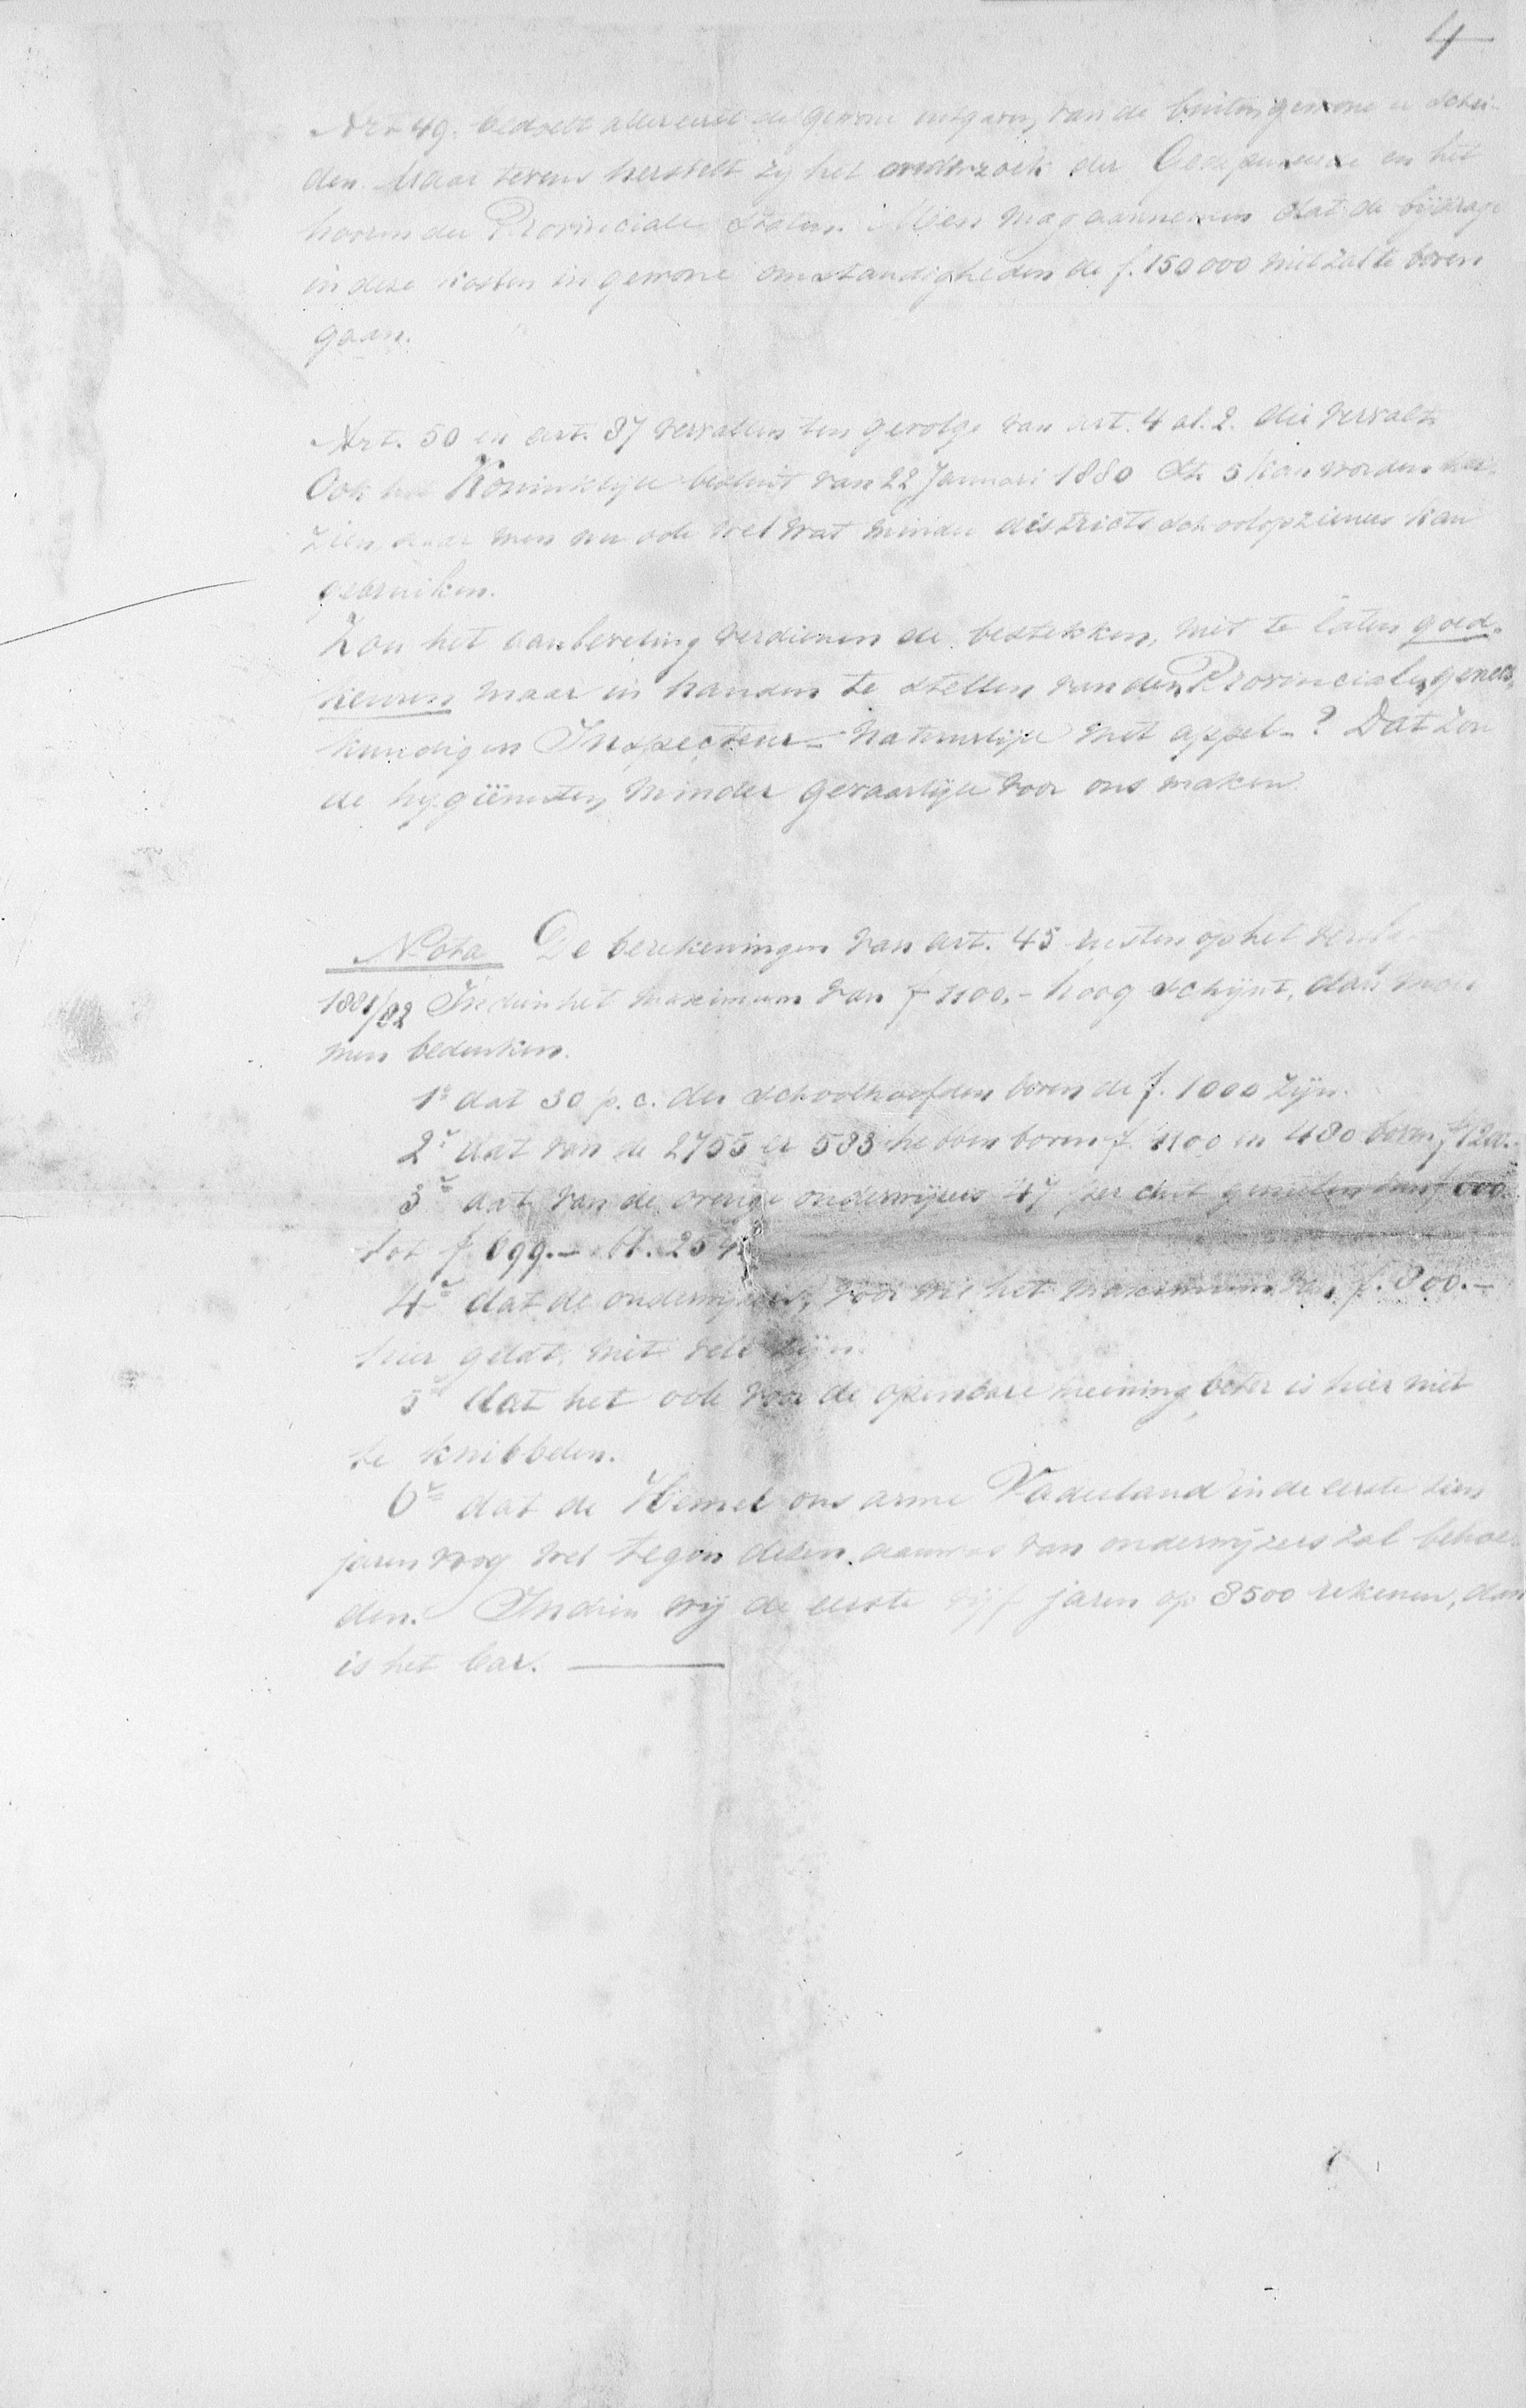 4
Art 49. bedoelt allereerst de gewone uitgaven van de buitengewone te schei-
den. Maar tevens herstelt zij het onderzoek der Gedeputeerde en het
hooren der Provinciale Staten. Men mag aannemen dat de bijdrage
in deze kosten in gewone omstandigheden de f. 150 000 niet zal te boven
gaan.
Art. 50 en art. 87 vervallen ten gevolge van art. 4 al. 2. die vervalt.
Ook het Koninklijk besluit van 22 Januari 1880 St. 5 kan worden her-
zien, daar men nu ook wel wat minder districts schoolopzieners kan
gebruiken.
Zou het aanbeveling verdienen de bestekken, niet te laten goed-
keuren maar in handen te stellen van den Provincialen genees-
kundigen Inspecteur - Natuurlijk met appel - ? Dat zou
de hygiënisten minder gevaarlijk voor ons maken
Nota De berekeningen van art. 45 rusten op het
1881/82 Indien het maximum van f 1100.- hoog schijnt, dan
men bedenken.
1o dat 30 p. c. der schoolhoofden boven de f. 1000 zijn.
2o dat van de 2755 er 583 hebben boven f. 1100 en 480 boven f 1200.-
3o dat van de overige onderwijzers 47 per cent genieten van f 600
tot f. 699.-
4o dat de onderwijzers, voor wie het maximum van f. 800.-
hier geldt, niet vele zijn.
5o dat het ook voor de openbare meening beter is hier niet
te knibbelen.
6o dat de Hemel ons arme Vaderland in de eerste tien
jaren nog wel tegen dezen aanwas van onderwijzers zal behoe-
den. Indien wij de eerste vijf jaren op 8500 rekenen, dan
is het bar.